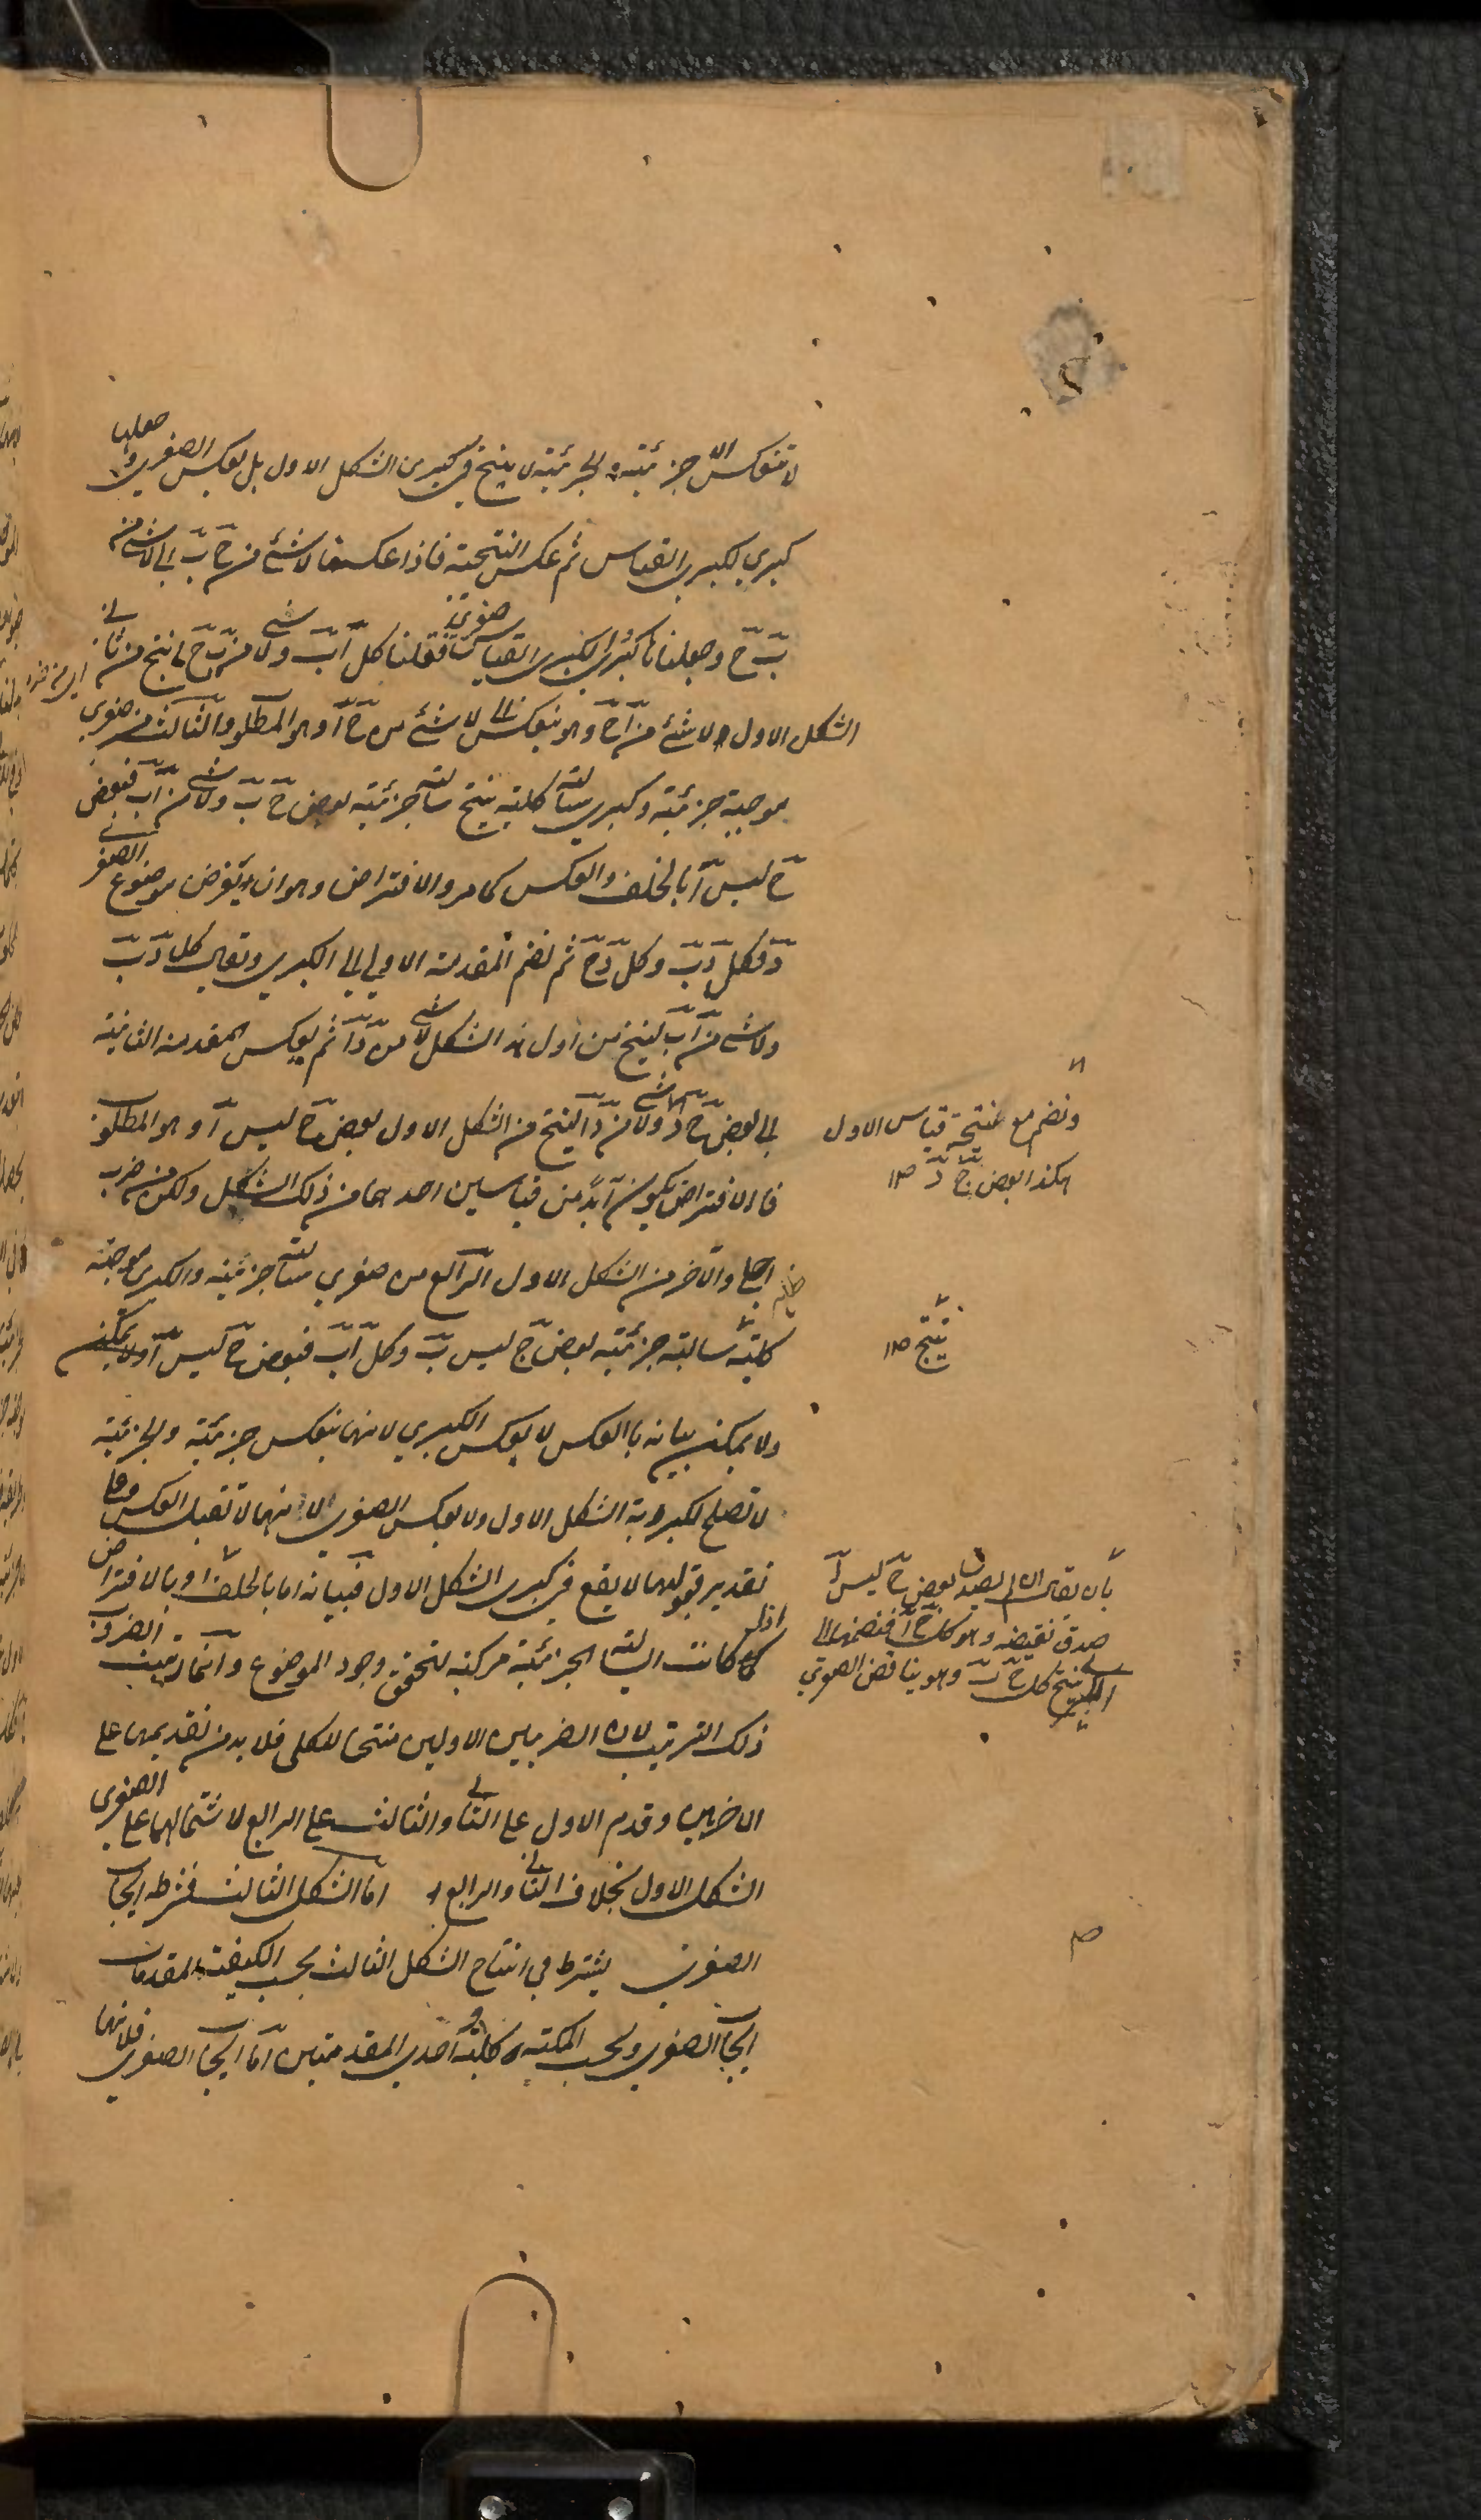 لا تنعكس الا جزئية والجزئية لا ينتج في كبرى الشكل الاول بل بعكس الصغرى وجعلها
كبرى لكبرى القياس ثم عكس النتيجة فاذا عكسنا لا شئ من ج ب الى لا شئ من
ب ج وجعلناها كبرى لكبرى القياس صغرى فقلنا كل آ ب ولا شئ من ب ج ينتج من ثاني
الشكل الاول لا شئ من آ ج وهو ينعكس الى لا شئ من ج آ وهو المطلو والثالث من صغرى
موجبة جزئية وكبرى سالبة كلية ينتج سالبة جزئية بعض ج ب ولا شئ من آ ب فبعض
ج ليس آ بالخلف والعكس كما مر والافتراض وهو ان يفرض موضوع الصغرى
د فكل د ب وكل د ج ثم نضم المقدمة الاولى الى الكبرى ويقال كل د ب
ولا شئ من آ ب لينتج من اول هذ الشكل لا شئ من د آ ثم يعكس المقدمة الثانية
الى بعض ج د ولا شئ من د آ لينتج من الشكل الاول بعض ج ليس آ وهو المطلو
فا الافتراض يكون ابدا من قياسين احدهما من ذلك الشكل ولكن من ضرب
اجلى والآخر من الشكل الاول الرابع من صغرى سالبة جزئية والكبرى موجبة
كلية سالبة جزئية بعض ج ليس ب وكل آ ب فبعض ج ليس آ ولا يمكن
ولا يمكن بيانه باالعكس لا بعكس الكبرى لانها ينعكس جزئية والجزئية
لا تصلح لكبروية الشكل الاول ولا بعكس الصغرى لانها لا تقبل العكس وعلى
تقدير قبولها لا يقع في كبرى الشكل الاول فبيانه اما بالخلف او بالافتراض
اذا كانت السالبة الجزئية مركبة لتحقق وجود الموضوع وانما رتبت الضروب
ذلك الترتيب لان الضربين الاولين منتجا للكلى فلا بد من تقديمها على
الاخرين وقدم الاول على الثاني والثالث على الرابع لاشتمالهما على الصغرى
الشكل الاول بخلاف الثاني والرابع اما الشكل الثالث فشرطه ايجاب
الصغرى يشترط في انتاج الشكل الثالث بحسب الكيفية المقدمات
ايجاب الصغرى وبحسب الكمية كلية احدى المقدمتين اما ايجاب الصغرى فلانها
ونضم مع نتيجة قياس الاول
هكذا بعض ج د ١٢
ينتج ١٢
بان يقال لو لم يصدق بعض ج ليس آ
صدق نقيضه وهو كل ج آ فنضمها الى
الكبرى ينتج كل ج ب وهو يناقض الصغرى
ص